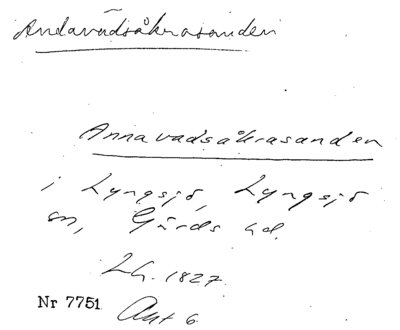 Andavadsåkrasanden
Annavadsåkrasanden
i Lyngsjö, Lyngsjö
sn, Gärds hd.
Lh. 1827.
Nr 7751 Akt 6